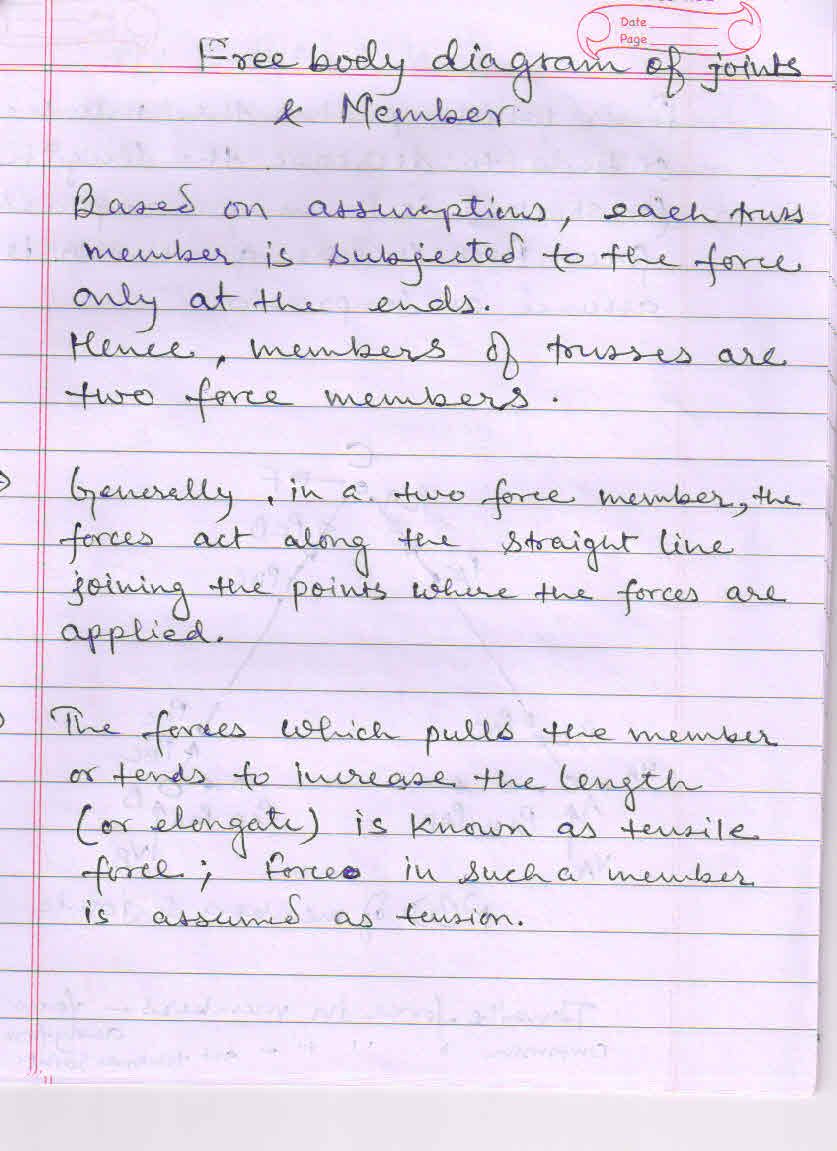 Date
Page
Free body diagram of joints
& Member
Based on assumptions, each truss
member is subjected to the force
only at the ends.
Hence, members of trusses are
two force members.
Generally, in a two force member, the
forces act along the straight line
joining the points where the forces are
applied.
The forces which pulls the member
or tends to increase the length
(or elongate) is known as tensile
force; Force in such a member
is assumed as tension.